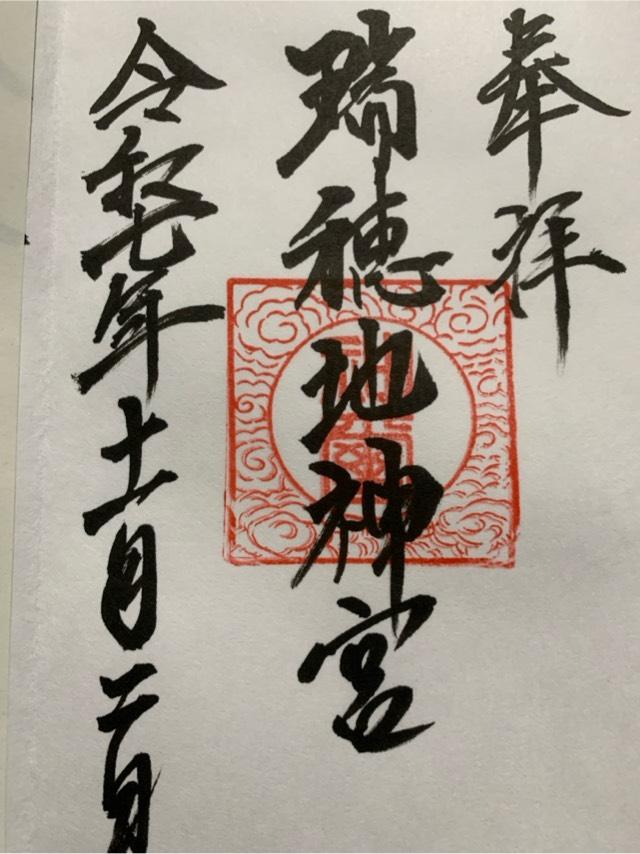 奉拝
瑞穂地神宮
令和七年十一月二日